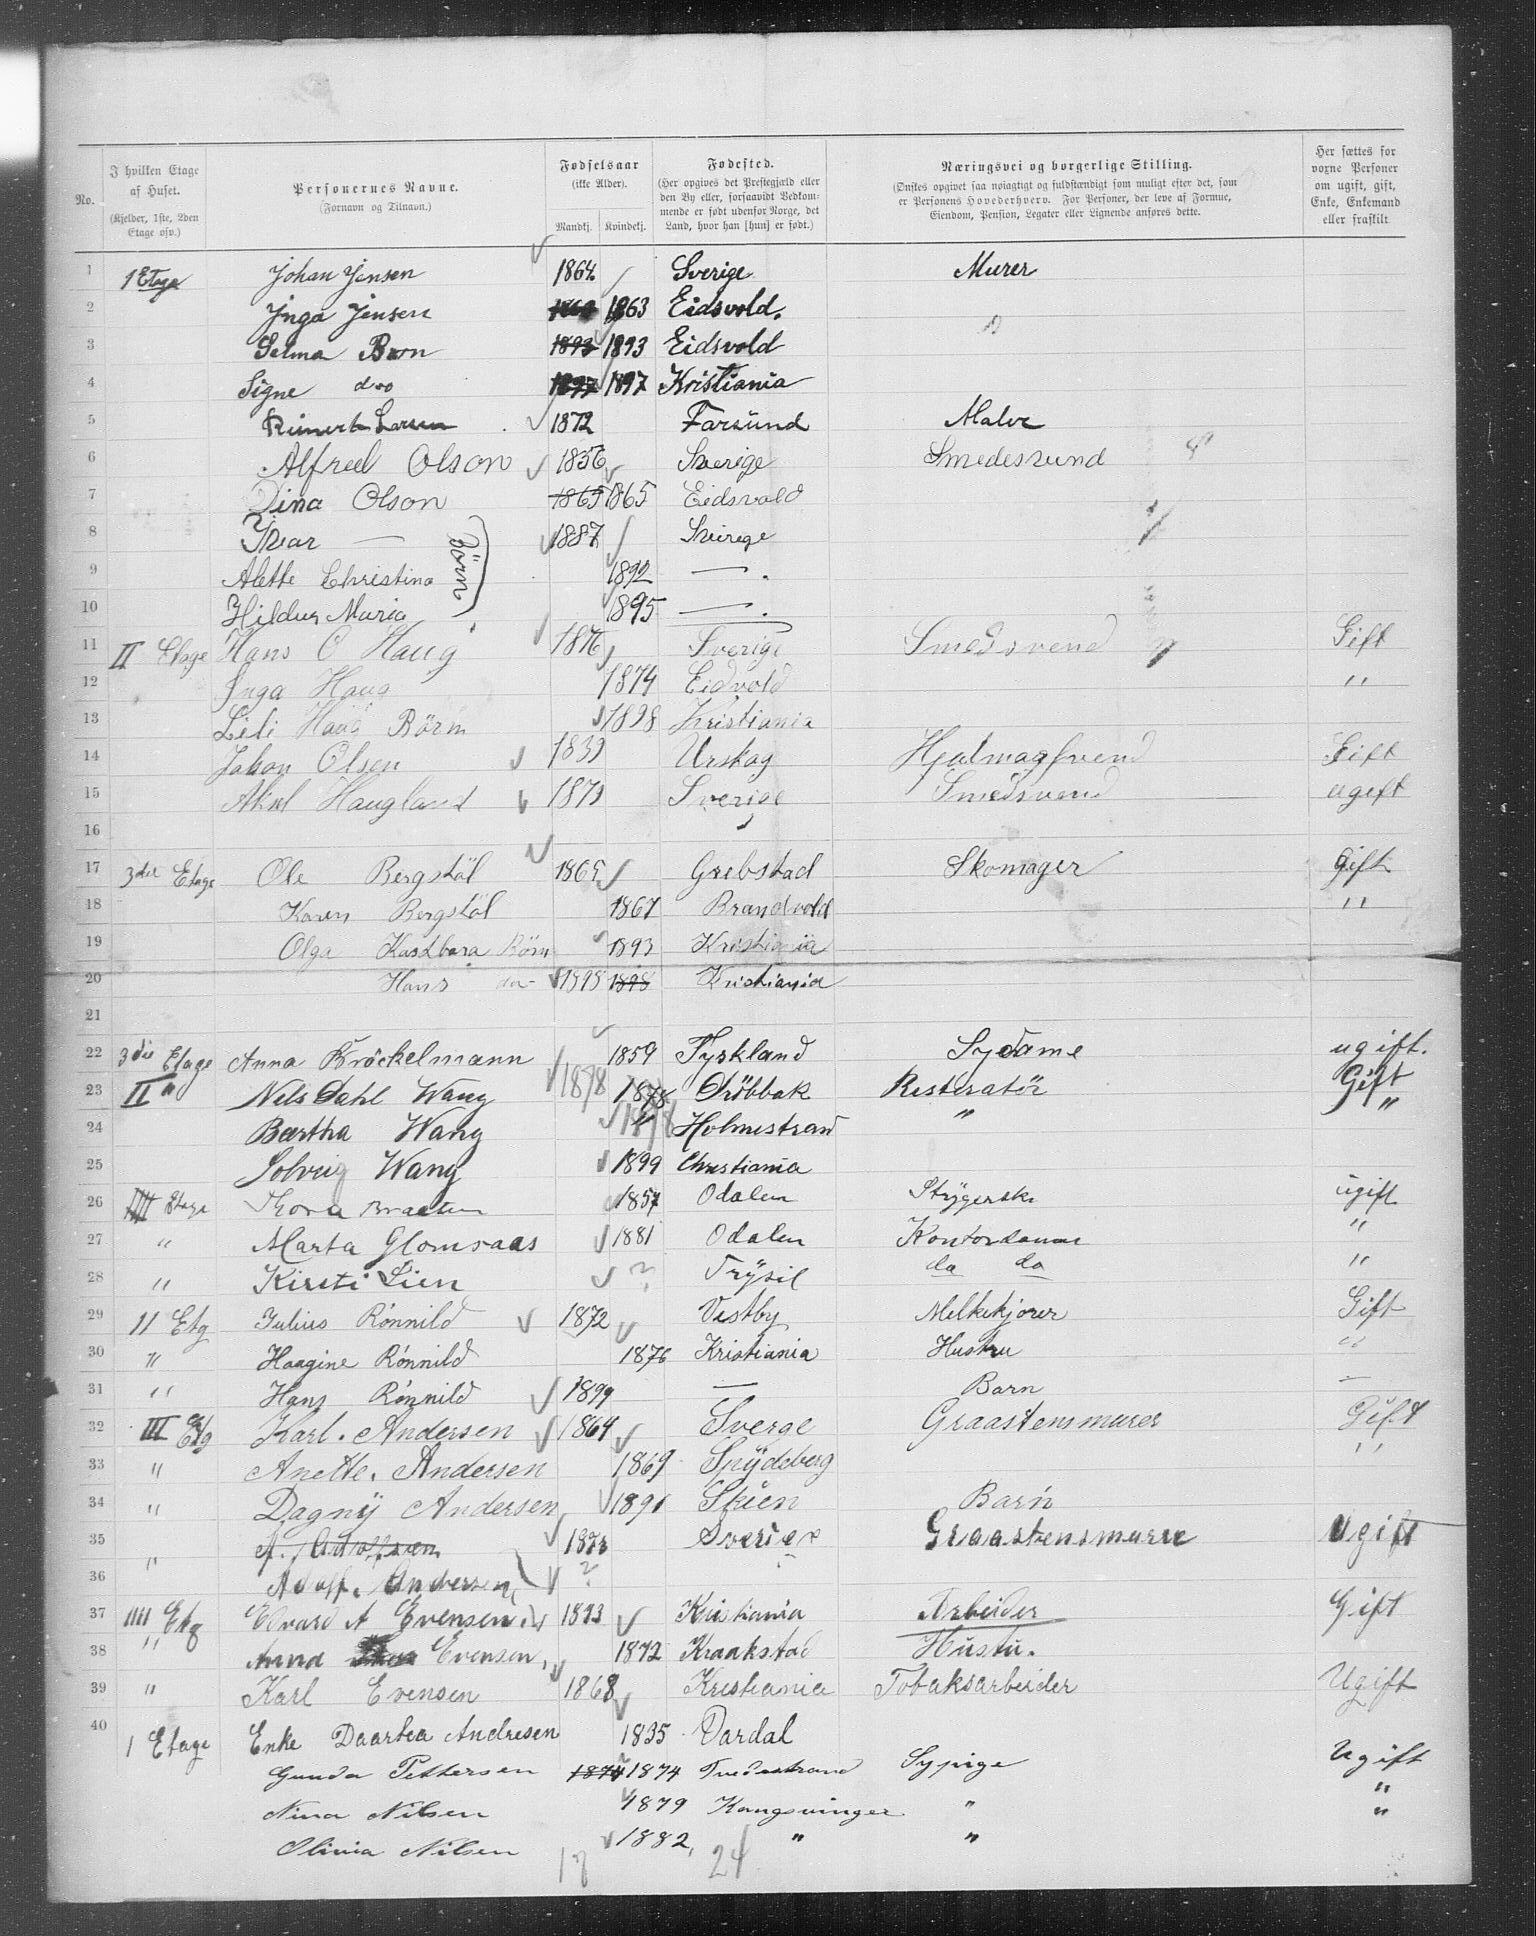 No.	I hvilken Etage af Huset. (Kjelder, 1ste, 2den Etage osv.)	Personernes Navne. (Fornavn og Tilnavn.)	Fødselsaar (ikke Alder). Mandkj. Kvindekj.	Fødested. (Her opgives det Prestegjæld eller den By eller, forsaavidt Vedkommende er født udenfor Norge, det Land, hvor han [hun] er født.)	Næringsvei og borgerlige Stilling. (Ønskes opgivet saa nøiagtigt og fuldstændigt som muligt efter det, som er Personens Hovederhverv. For Personer, der leve af Formue, Eiendom, Pension, Legater eller Lignende anføres dette.)	Her sættes for voxne Personer om ugift, gift, Enke, Enkemand eller fraskilt.
1 1 Etage Johan Jensen 1864 Sverige Murer
2 Inga Jensen 1863 Eidsvold.
3 Selma Barn 1893 1893 Eidsvold
4 Signe do 1897 1897 Kristiania
5 Reinert Larsen 1872 Farsund Maler
6 Alfred Olson 1856 Sverige Smedesvend
7 Dina Olson 1865 1865 Eidsvold
8 Ivar — 1887 Sverige
Börn
9 Alette Christina 1892 —
10 Hildur Maria 1895 —
11 II Etage Hans O Haug 1876 Sverige Smedsvend Gift
12 Inga Haug 1874 Eidvold "
13 Lili Haug Börn 1898 Kristiania
14 Jakon Olsen 1839 Urskog Hjulmagsvend Gift
15 Aksel Haugland 1879 Sverige Smedsvend ugeft
16
17 3der Etage Ole Bergstöl 1865 Grebstad Skomager gift
18 Karen Bergstöl 1867 Brandvold "
19 Olga Kastbara Börn 1893 Kristiania
20 Hans do 1895 1898 Kristiania
21
22 3die Etage Anna Bröckelmann 1859 Tyskland Sydame ugift.
23 II " Nels Dahl Wang 1878 1878 Dröbbak Restoratör Gift
24 Bærtha Wang 1878 Holmestrand " "
25 Solveig Wang 1899 Christiania
26 IIII Etage Thora Braaten 1857 Odalen Strygerske ugift
27 " Marta Glomsaas 1881 Odalen Kontordame "
28 " Kirsti Lien ? Trysil do do "
29 II Etg Julius Rønnild 1872 Vestby Melkekjører Gift
30 " Haagine Rønnild 1876 Kristiania Hustru "
31 " Hans Rønnild 1899 — Barn —
32 III Etg Karl. Andersen 1864 Sverge Graastensmurer Gift
33 " Anette. Andersen 1869 Spydeberg "
34 " Dagny Andersen 1891 Skien Barn
35 " A. Adolfsen 1873 Sverige Graastensmurer Ugift
36 Adolf. Andersen ?
37 IIII Etg Edvard A Evensen 1893 Kristiania Arbeider Gift
38 " Anna Evensen, 1872 Kraakstad Hustu.
39 " Karl Evensen 1868 Kristiania Tobaksarbeider Ugift
40 1 Etage Enke Daartea Andresen 1835 Vardal
Gunda Pettersen 1874 1874 Tvedestrand Sypige Ugift
Nina Nilsen 1879 Kongsvinger " "
Olivia Nilsen 1882, " " "
17 24